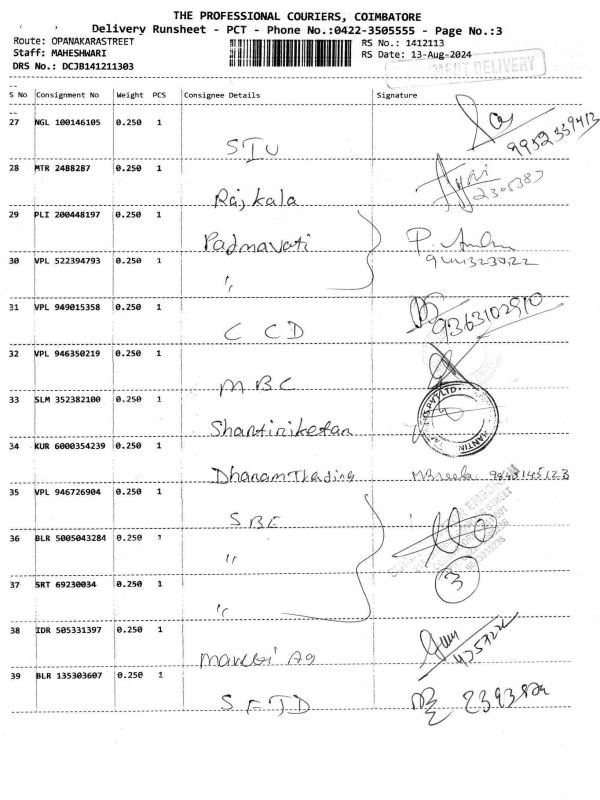 THE PROFESSIONAL COURIERS, COIMBATORE
Delivery Runsheet - PCT - Phone No.:0422-3505555 - Page No.:3
Route: OPANAKARASTREET
RS No.: 1412113
Staff: MAHESHWARI
RS Date: 13-Aug-2024
DRS No.: DCJB141211303
DELIVERY
S No Consignment No Weight PCS Consignee Details Signature
27 NGL 100146105 0.250 1
STU 9952339413
28 MTR 2488287 0.250 1
Rajkala
29 PLI 200448197 0.250 1
Padmavati
30 VPL 522394793 0.250 1
"
31 VPL 949015358 0.250 1
CCD 9363102910
32 VPL 946350219 0.250 1
MBC
33 SLM 352382100 0.250 1
Shantiniketan
34 KUR 6000354239 0.250 1
Dhanam Trading
35 VPL 946726904 0.250 1
SBE
36 BLR 5005043284 0.250 1
"
37 SRT 69230034 0.250 1
" 3
38 IDR 505331397 0.250 1
39 BLR 135303607 0.250 1